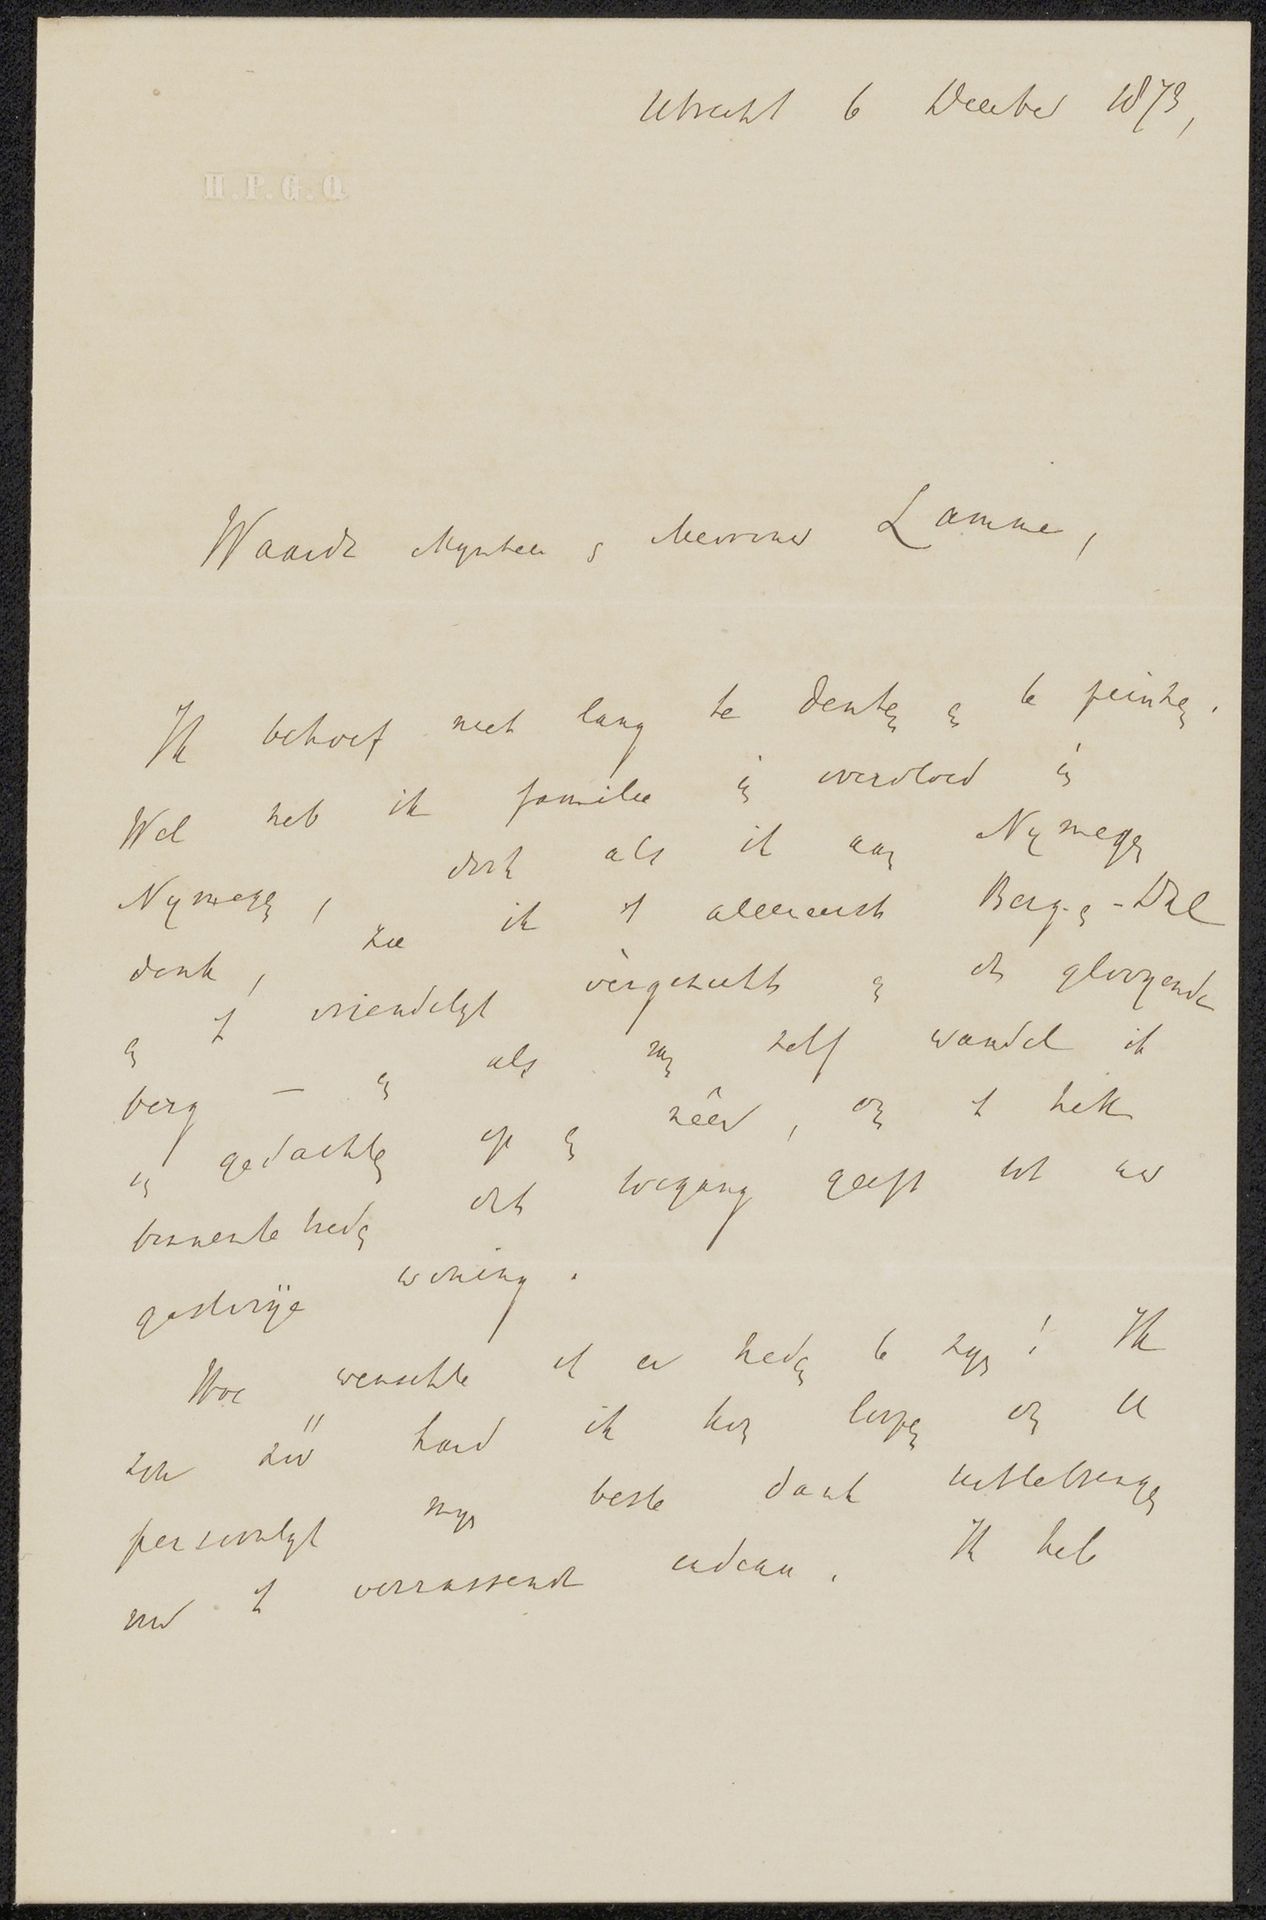 Utrecht 6 December 1873,
H.P.G.Q.
Waarde Mynheer & Mevrouw Lamme,
Ik behoef niet lang te denken en te peinzen.
Wel heb ik familie in overvloed in
Nymegen, doch als ik aan Nymegen
denk, zie ik 't allereerst Berg-en-Dal
en 't vriendelyk vergezicht en de glooyende
berg — en als van zelf wandel ik
in gedachten op en nêer, om 't hek
binnentetreden dat toegang geeft tot uw
gastvrije woning.
Hoe wenschte ik er heden te zyn! Ik
zou zóó hard ik kon loopen om U
persoonlyk myn beste dank uittebrengen
voor 't verrassende cadeau. Ik heb